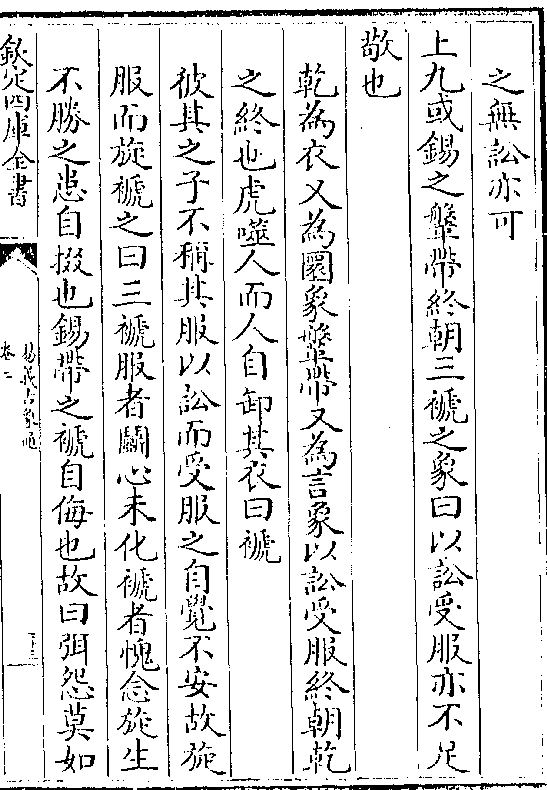 之無訟亦可
上九或錫之鞶帶終朝三褫之象曰以訟受服亦不足
敬也
乾為衣又為圜象鞶帶又為言象以訟受服終朝乾
之終也虎噬人而人自卸其衣曰褫
彼其之子不稱其服以訟而受服之自覺不安故旋
服而旋褫之曰三褫服者鬭心未化褫者愧念旋生
不勝之恚自掇也錫帶之褫自侮也故曰弭怨莫如
欽定四庫全書
易義古象通
卷二